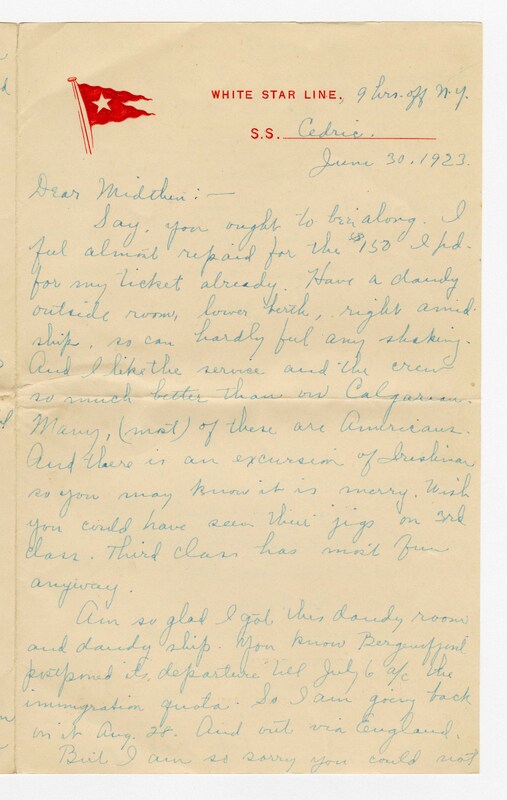 WHITE STAR LINE, 9 hrs. off N.Y.
S.S. Cedric.
June 30, 1923.
Dear Midthen: —
Say, you ought to be in along. I
feel almost repaid for the $150 I pd.
for my ticket already. Have a dandy
outside room, lower berth, right amid-
ship, so can hardly feel any shaking.
And I like the service and the crew
so much better than on Calgarian.
Many, (most) of these are Americans.
And there is an excursion of Irishmen
so you may know it is merry. Wish
you could have seen their jigs on 3rd
class. Third class has most fun
anyway.
Am so glad I got this dandy room
and dandy ship. You know Bergensfjord
postponed its departure till July 6 a/c the
immigration quota. So I am going back
on it Aug. 28. And out via England.
But I am so sorry you could not